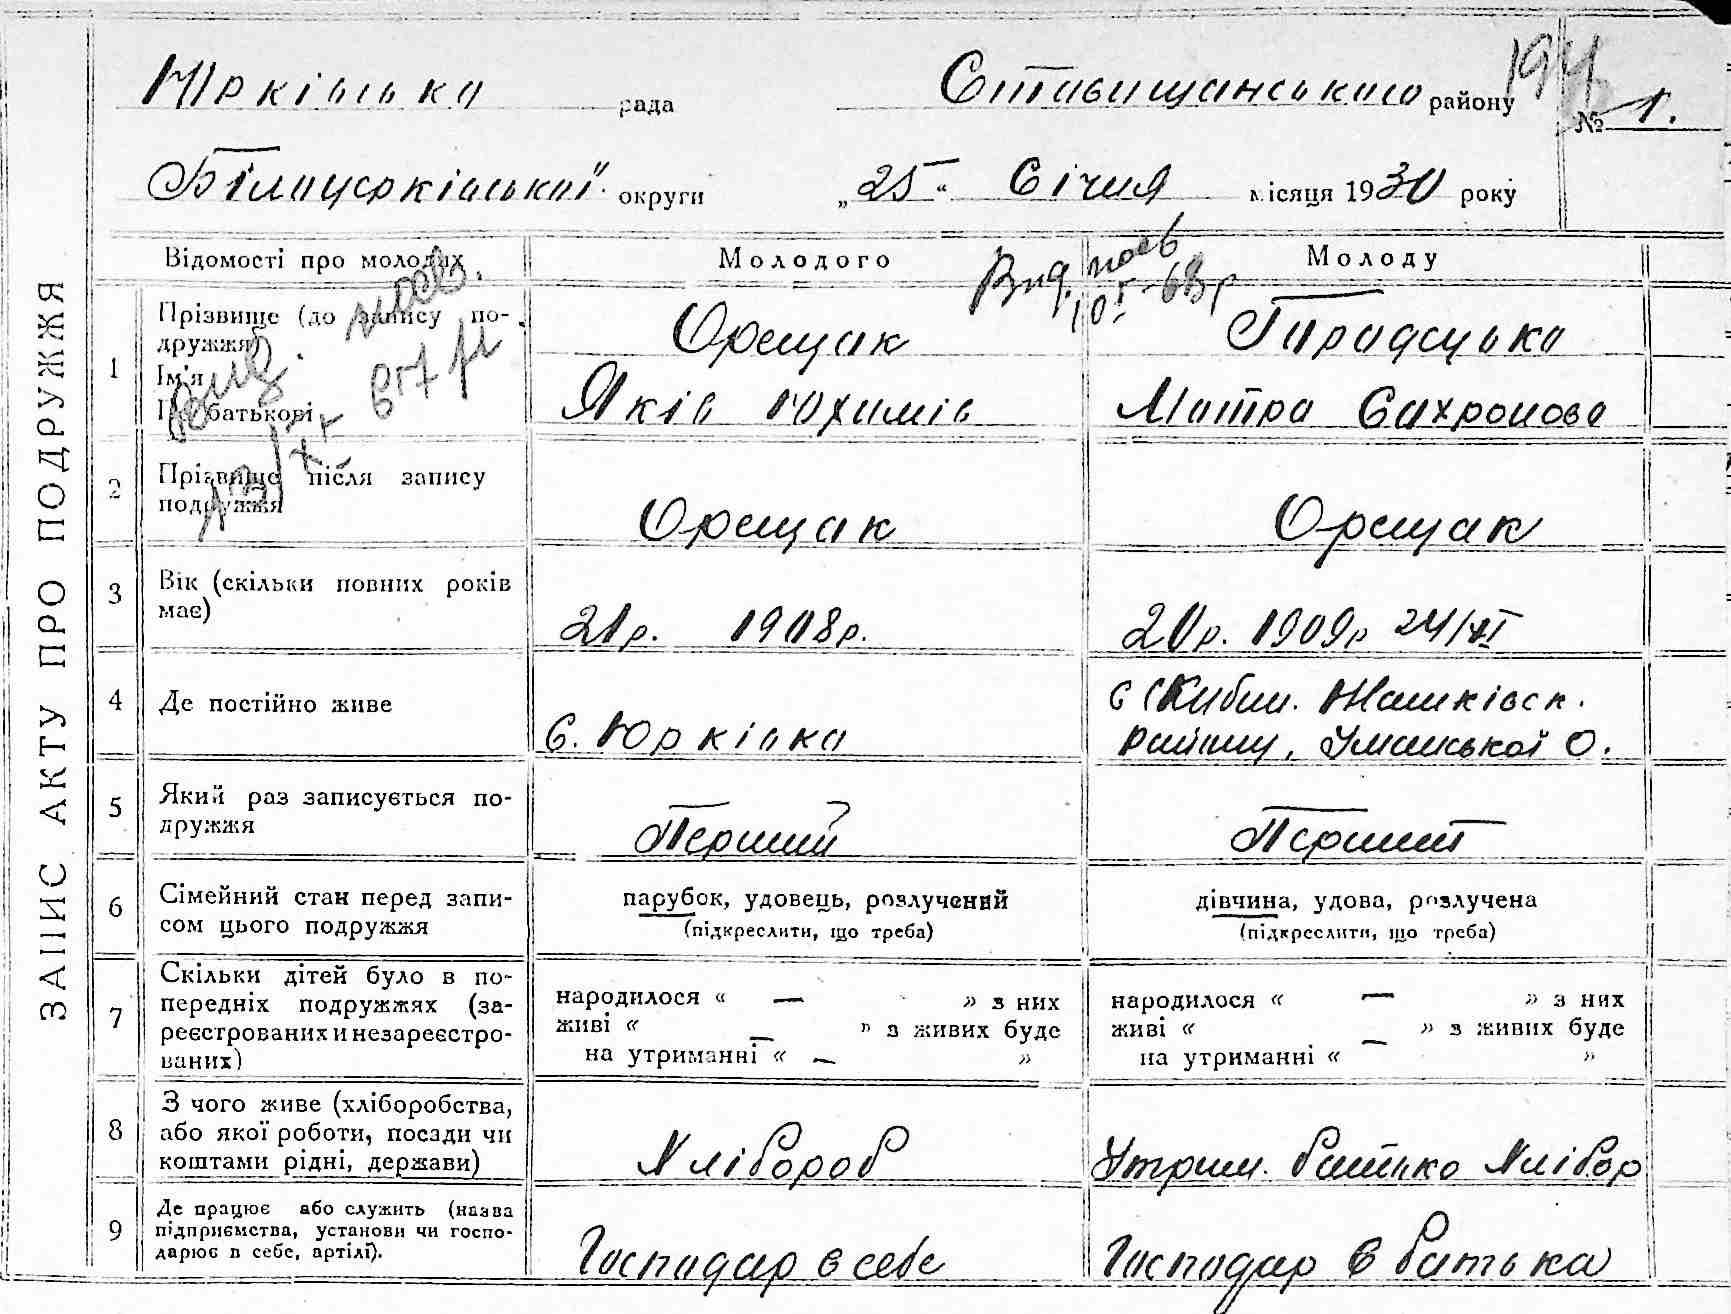 ЗАПИС АКТУ ПРО ПОДРУЖЖЯ
Юрківська рада Ставищанського району
№ 1.
Білоцерківської округи „25“ Січня місяця 1930 року
Відомості про молодих Молодого Молоду
1 Прізвище (до запису по-
дружжя) Орещак
Ім'я
По батькові Яків Юхимів
Мотра Сахронова
2 Прізвище після запису
подружжя Орещак Орещак
3 Вік (скільки повних років
має) 21р. 1908р. 20р. 1909р
4 Де постійно живе с. Юрківка
Жашківськ.
району, Уманської О.
5 Який раз записується по-
дружжя Перший Перший
6 Сімейний стан перед запи-
сом цього подружжя
парубок, удовець, розлучений
(підкреслити, що треба)
дівчина, удова, розлучена
(підкреслити, що треба)
7 Скільки дітей було в по-
передніх подружжях (за-
реєстрованих и незареєстро-
ваних)
народилося « — » з них
живі « — » з живих буде
на утриманні « — »
народилося « — » з них
живі « — » з живих буде
на утриманні « »
8 З чого живе (хліборобства,
або якої роботи, посади чи
коштами рідні, держави)
Хлібороб
Утрим. батько Хлібор
9 Де працює або служить (назва
підприємства, установи чи госпо-
дарює в себе, артілі).
Господар в себе
Господар в батька